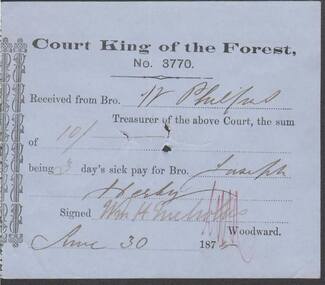 Court King of the Forest,
No. 3770.
Received from Bro. W
Treasurer of the above Court, the sum
of 10/
being 3 day's sick pay for Bro. Joseph
Hardy
Signed Wm H Nicholds
Woodward.
June 30 187